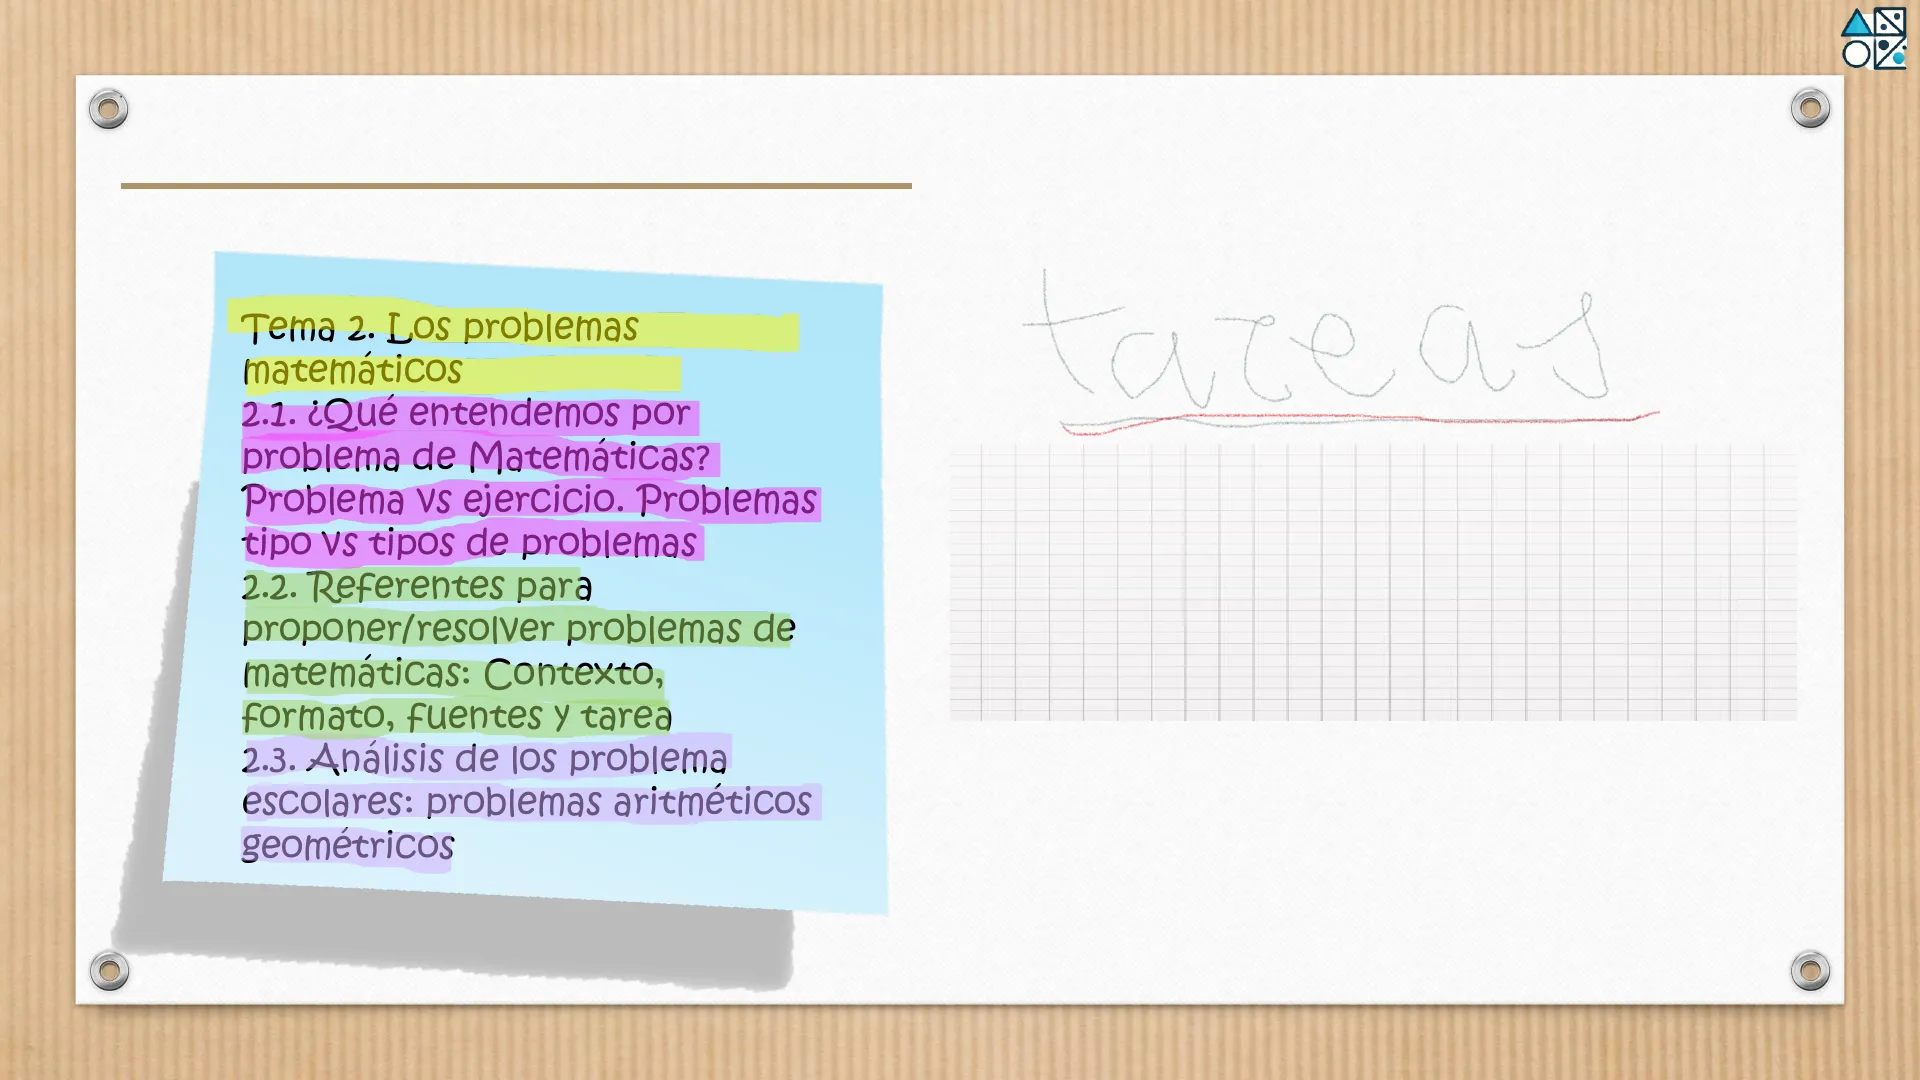 Tema 2. Los problemas
matemáticos
2.1. ¿Qué entendemos por
problema de Matemáticas?
Problema vs ejercicio. Problemas
tipo vs tipos de problemas
2.2. Referentes para
proponer/resolver problemas de
matemáticas: Contexto,
formato, fuentes y tarea
2.3. Análisis de los problema
escolares: problemas aritméticos
geométricos
tareas